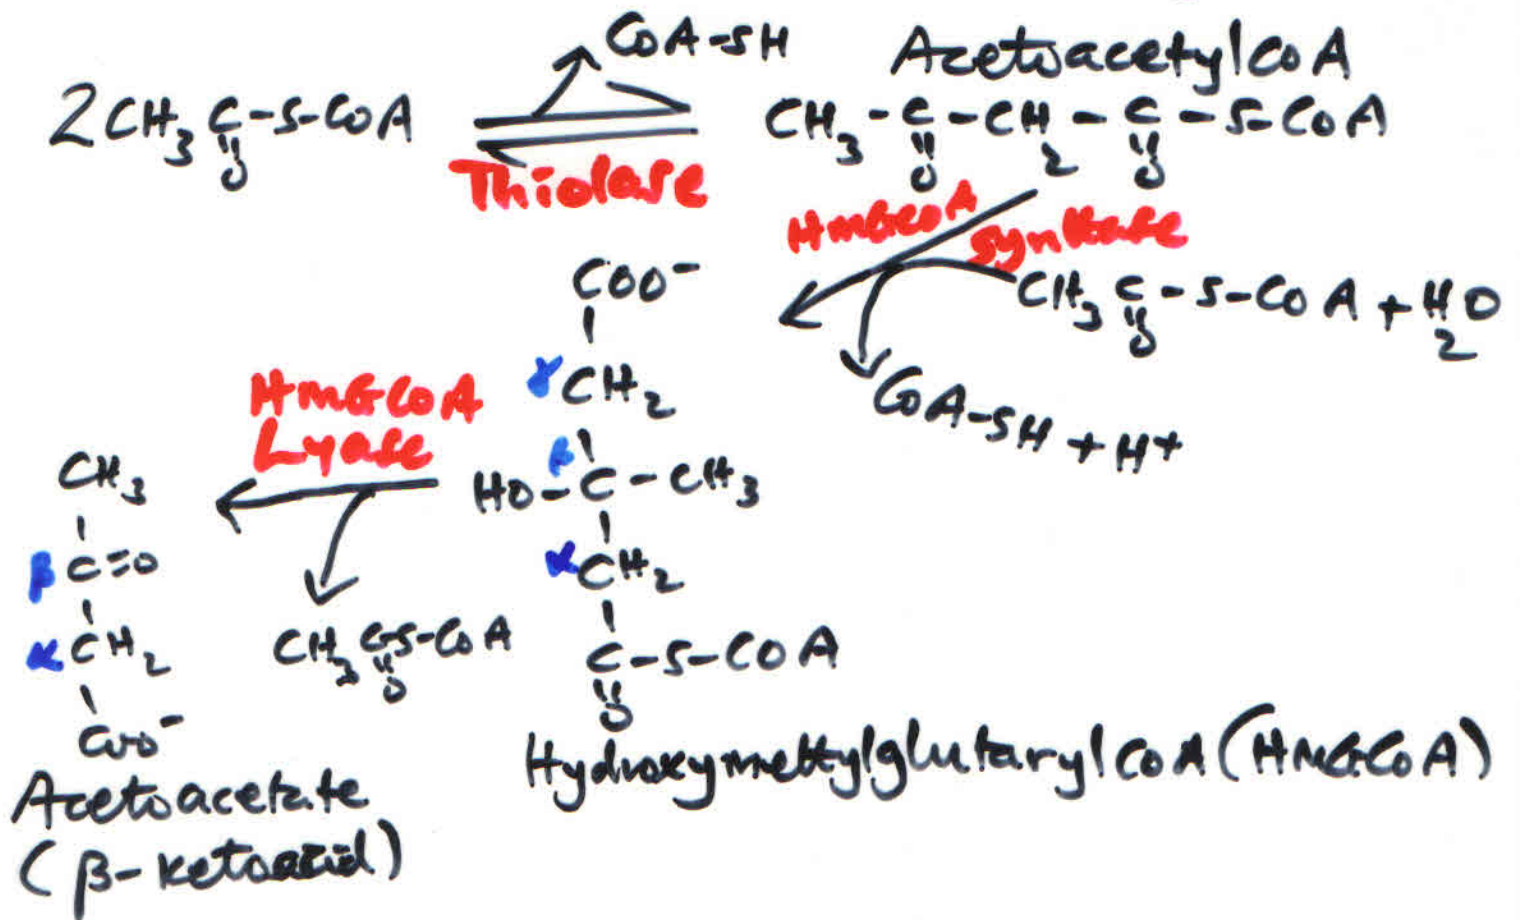 CoA-SH
AcetoacetylCoA
2CH3 C-S-CoA
O
CH3 - C - CH2 - C - S-CoA
O O
Thiolase
HMGCoA synthase
CH3 C - S - CoA + H2O
O
CoA-SH + H+
COO-
γ CH2
β
HO - C - CH3
α CH2
C - S - COA
O
HydroxymethylglutarylCoA (HMGCoA)
HMGCoA
Lyase
CH3 C-S-CoA
O
CH3
β C=O
α CH2
COO-
Acetoacetate
(β-ketoacid)